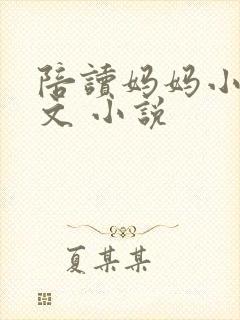 陪讀妈妈小
文 小說
夏某某